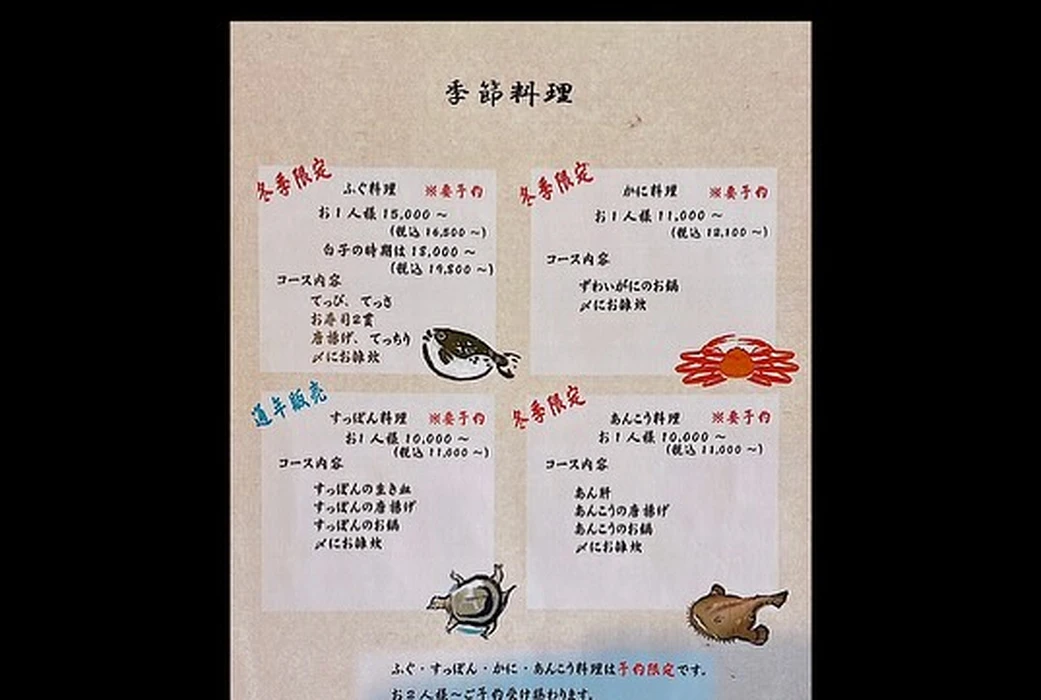 季節料理
冬季限定
ふぐ料理 ※要予約
お1人様 15,000 ～
(税込 16,500 ～)
白子の時期は 18,000 ～
(税込 19,800 ～)
コース内容
てっぴ、てっさ
お寿司2貫
唐揚げ、てっちり
〆にお雑炊
冬季限定
かに料理 ※要予約
お1人様 11,000 ～
(税込 12,100 ～)
コース内容
ずわいがにのお鍋
〆にお雑炊
通年販売
すっぽん料理 ※要予約
お1人様 10,000 ～
(税込 11,000 ～)
コース内容
すっぽんの生き血
すっぽんの唐揚げ
すっぽんのお鍋
〆にお雑炊
冬季限定
あんこう料理 ※要予約
お1人様 10,000 ～
(税込 11,000 ～)
コース内容
あん肝
あんこうの唐揚げ
あんこうのお鍋
〆にお雑炊
ふぐ・すっぽん・かに・あんこう料理は予約限定です。
お2人様～ご予約受け賜わります。